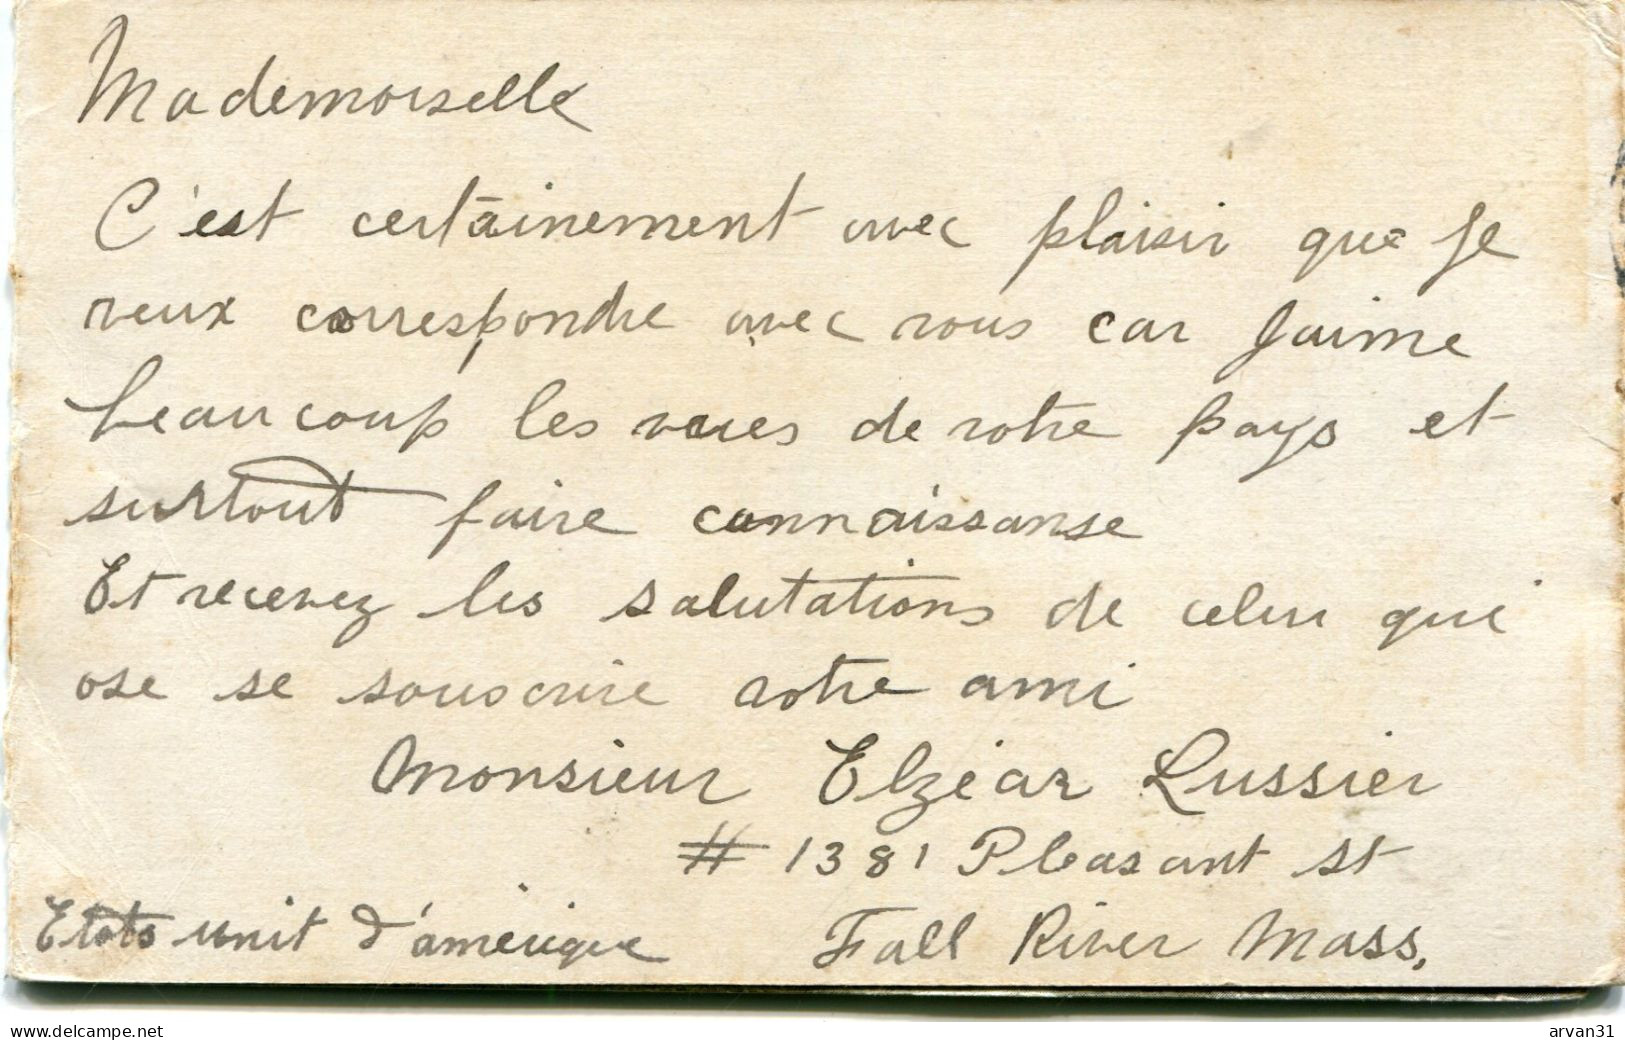 Mademoiselle
C'est certainement avec plaisir que Je
veux correspondre avec vous car Jaime
beaucoup les vues de votre pays et
surtout faire connaissanse
Et recevez les salutations de celui qui
ose se souscrire votre ami
Monsieur Elzéar Lussier
# 1381 Pleasant st
Etats unit d'amérique Fall River Mass.
www.delcampe.net
arvan31